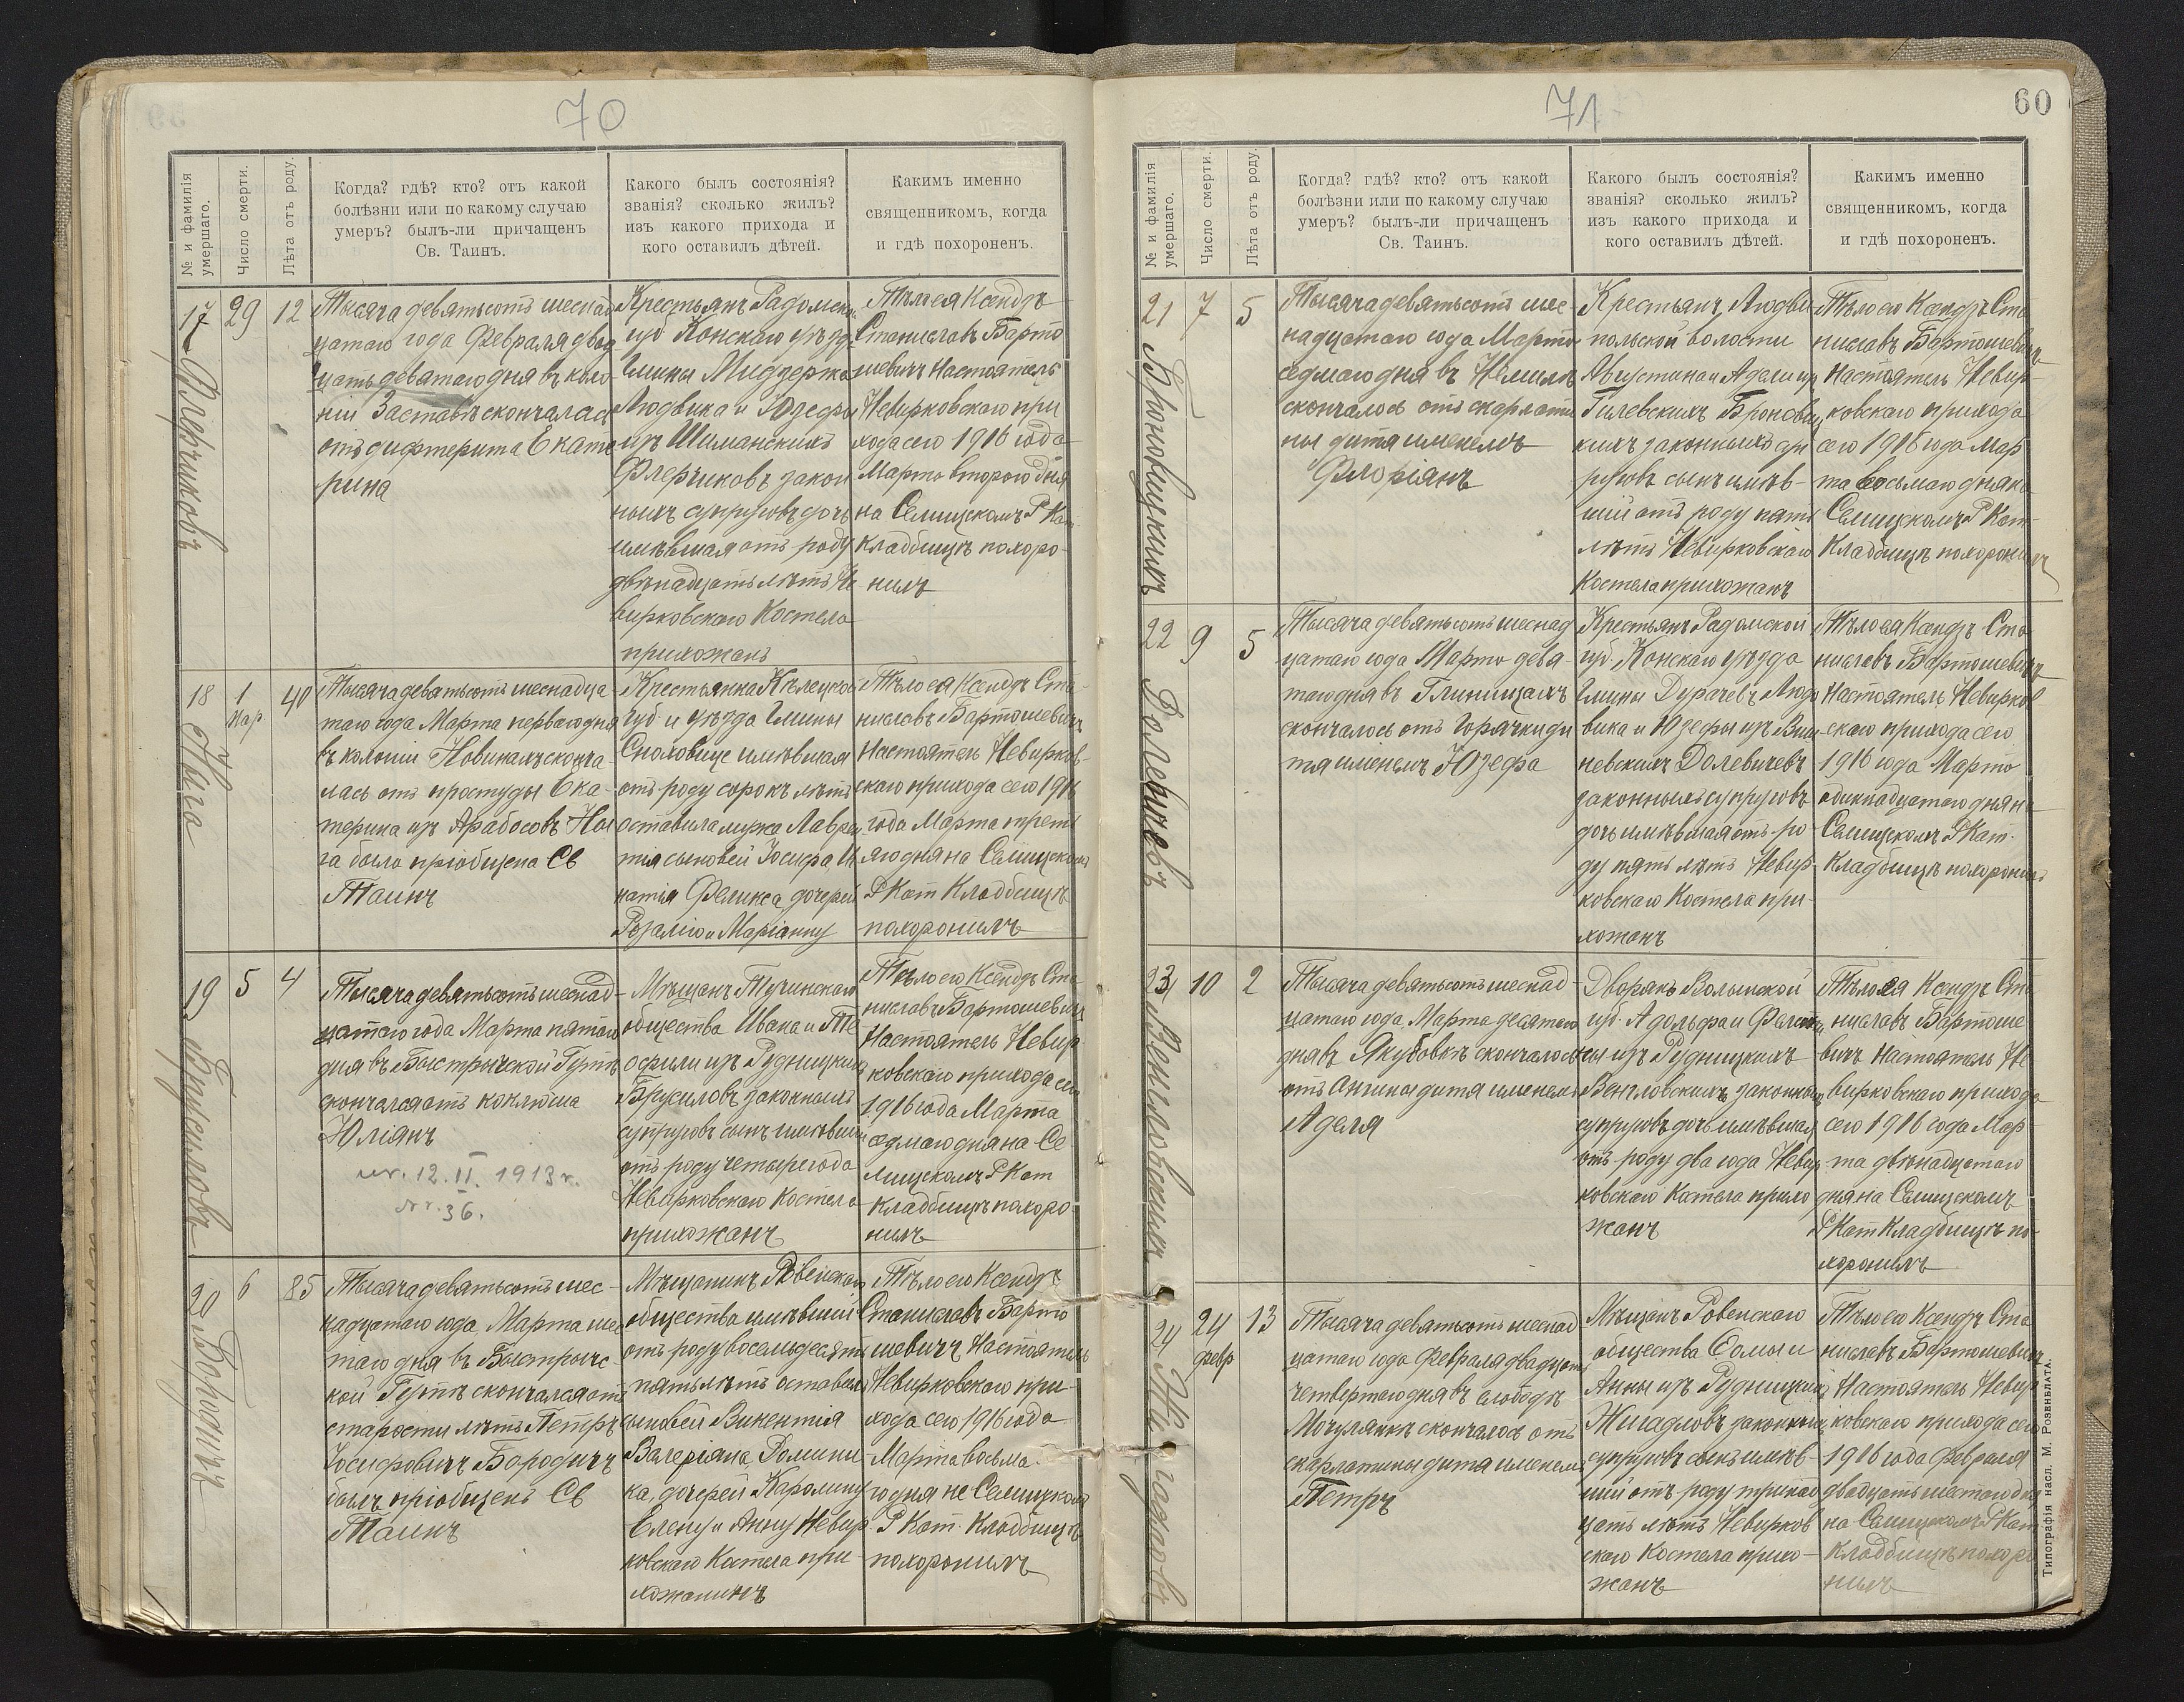 70
№ и фамилія умершаго.
Число смерти.
Лѣта отъ роду.
Когда? гдѣ? кто? отъ какой
болѣзни или по какому случаю
умеръ? былъ-ли причащенъ
Св. Таинъ.
Какого былъ состоянія?
званія? сколько жилъ?
изъ какого прихода и
кого оставилъ дѣтей.
Какимъ именно
священникомъ, когда
и гдѣ похороненъ.
17 Флерчиковъ
29
12
Тысяча девятьсотъ шеснад
цатаго года Февраля двад
цать девятаго дня въ коло
ніи Заставьи скончалась
отъ дифтерита Екате
рина
Крестьянъ Радомской
губ Конскаго уѣзда
Гмины Мидзержа
Людвика и Юзефы
изъ Шиманскихъ
Флерчиковъ закон
ныхъ супруговъ дочь
имѣвшая отъ роду
двѣнадцать лѣтъ Не
вирковскаго Костела
прихожанъ
Тѣло ея Ксендзъ
Станиславъ Барто
шевичъ Настоятель
Невирковскаго при
хода сего 1916 года
Марта второго дня
на Селищскомъ Р Кат
Кладбищѣ похоро-
нилъ
18 Нога
1
Мар.
40
Тысяча девятьсотъ шеснадца
таго года Марта перваго дня
въ колоніи Новинахъ сконча
лась отъ простуды Ека-
терина изъ Арабосовъ Но
га была пріобщена Св
Таинъ
Крестьянка Кѣлецкой
Губ и уѣзда Гмины
Снохowице имѣвшая
отъ роду сорокъ лѣтъ
оставила мужа Лаврен
тія сыновей Іосифа, И
гнатія Феликса дочерей
Розалію и Маріанну
Тѣло ея Ксендзъ Ста
ниславъ Бартошевичъ
Настоятель Невирков
скаго прихода сего 1916
года Марта треть
яго дня на Селищскомъ
Р Кат Кладбищѣ
похоронилъ
19 Брусиловъ
5
4
Тысяча девятьсотъ шеснад-
цатаго года Марта пятаго
дня въ Быстричской Гутѣ
скончался отъ коклюша
Юліянъ
ur. 12. II. 1913 r.
Nr. 36.
Мѣщанъ Тучинскаго
общества Ивана и Те
офили изъ Рудницкихъ
Брусиловъ законныхъ
супруговъ сынъ имѣвшій
отъ роду четыре года
Невирковскаго Костела
прихожанъ
Тѣло его Ксендзъ Ста
ниславъ Бартошевичъ
Настоятель Невир
ковскаго прихода сего
1916 года Марта
седмаго дня на Се
лищскомъ Р Кат
Кладбищѣ похоро
нилъ
20 Бородичъ
6
85
Тысяча девятьсотъ шес-
надцатаго года Марта шес
таго дня въ Быстричс
кой Гутѣ скончался отъ
старости лѣтъ Петръ
Іосифовичъ Бородичъ
былъ пріобщенъ Св
Таинъ
Мѣщанинъ Ровенскаго
общества имѣвшій
отъ роду восемьдесятъ
пять лѣтъ оставилъ
сыновей Викентія
Валеріана, Домини
ка, дочерей Каролину
Елену и Анну Невир-
ковскаго Костела при-
хожанинъ
Тѣло его Ксендзъ
Станиславъ Барто
шевичъ Настоятель
Невирковскаго при-
хода сего 1916 года
Марта восьма-
го дня на Селищскомъ
Р Кат. Кладбищѣ
похоронилъ
71
60
№ и фамилія умершаго.
Число смерти.
Лѣта отъ роду.
Когда? гдѣ? кто? отъ какой
болѣзни или по какому случаю
умеръ? былъ-ли причащенъ
Св. Таинъ.
Какого былъ состоянія?
званія? сколько жилъ?
изъ какого прихода и
кого оставилъ дѣтей.
Какимъ именно
священникомъ, когда
и гдѣ похороненъ.
21 Броновицкихъ
7
5
Тысяча девятьсотъ шес-
надцатаго года Марта
седмаго дня въ Немили
скончалось отъ скарлати
ны дитя именемъ
Флоріанъ
Крестьянъ Людви
польской волости
Августина и Адели изъ
Гилевскихъ Броновиц
кихъ законныхъ суп
руговъ сынъ имѣв-
шій отъ роду пять
лѣтъ Невирковскаго
Костела прихожанъ
Тѣло его Ксендзъ Ста
ниславъ Бартошевичъ
Настоятель Невир-
ковскаго прихода
сего 1916 года Мар
та восьмаго дня на
Селищскомъ Р Кат-
Кладбищѣ похоронилъ
22 Долевичовъ
9
5
Тысяча девятьсотъ шеснад
цатаго года Марта девя-
таго дня въ Глинищахъ
скончалось отъ горячки ди
тя именемъ Юзефа
Крестьянъ Радомской
губ. Конскаго уѣзда
Гмины Дурачевъ Людо
вика и Юзефы изъ Виш
невскихъ Долевичевъ
законныхъ супруговъ
дочь имѣвшая отъ ро
ду пять лѣтъ Невир-
ковскаго Костела при-
хожанъ
Тѣло ея Ксендзъ Ста
ниславъ Бартошевичъ
Настоятель Невирков
скаго прихода сего
1916 года Марта
одиннадцатаго дня на
Селищскомъ Р Кат.
Кладбищѣ похоронилъ
23 Венгловскихъ
10
2
Тысяча девятьсотъ шеснад-
цатаго года Марта десятаго
дня въ Якубовкѣ скончалось
отъ Ангины дитя именемъ
Аделя
Дворянъ Волынской
губ. Адольфа и Фелиц
ы изъ Рудницкихъ
Венгловскихъ законныхъ
супруговъ дочь имѣвшая
отъ роду два года Невир
ковскаго Костела прихо
жанъ
Тѣло ея Ксендзъ Ста
ниславъ Бартоше
вичъ Настоятель Не
вирковскаго прихода
сего 1916 года Мар
та двѣнадцатаго
дня на Селищскомъ
Р Кат Кладбищѣ по-
хоронилъ
24 Жигадловъ
24
февр
13
Тысяча девятьсотъ шеснад
цатаго года Февраля двадцать
четвертаго дня въ слободѣ
Мочулянкѣ скончалось отъ
скарлатины дитя именемъ
Петръ
Мѣщанъ Ровенскаго
общества Сомы и
Анны изъ Рудницкихъ
Жигадловъ законныхъ
супруговъ сынъ имѣв-
шій отъ роду тринад
цать лѣтъ Невирков
скаго Костела прихо-
жанъ
Тѣло его Ксендзъ Ста
ниславъ Бартошевичъ
Настоятель Невир
ковскаго прихода сего
1916 года Февраля
двадцать шестаго дня
на Селищскомъ Р Кат
Кладбищѣ похоро
нилъ
Типографія насл. М. Розенблата.